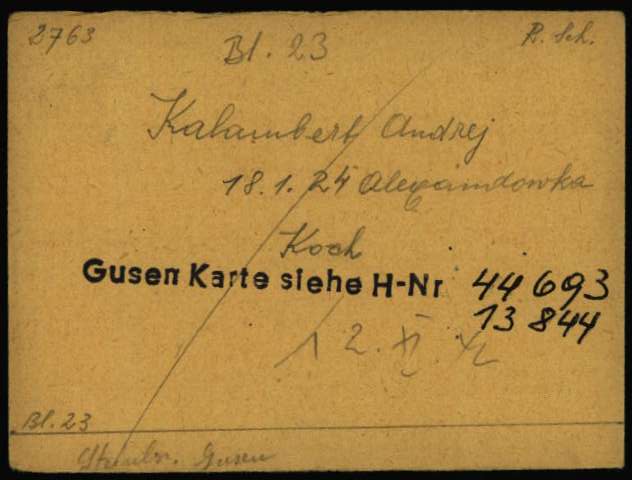 2763 Bl. 23 R. Sch.
Kalambert Andrej
18.1.24 Alexandowka
Koch
Gusen Karte siehe H-Nr 44 693
13 844
12. XI. 42
Bl. 23
Steinbr. Gusen